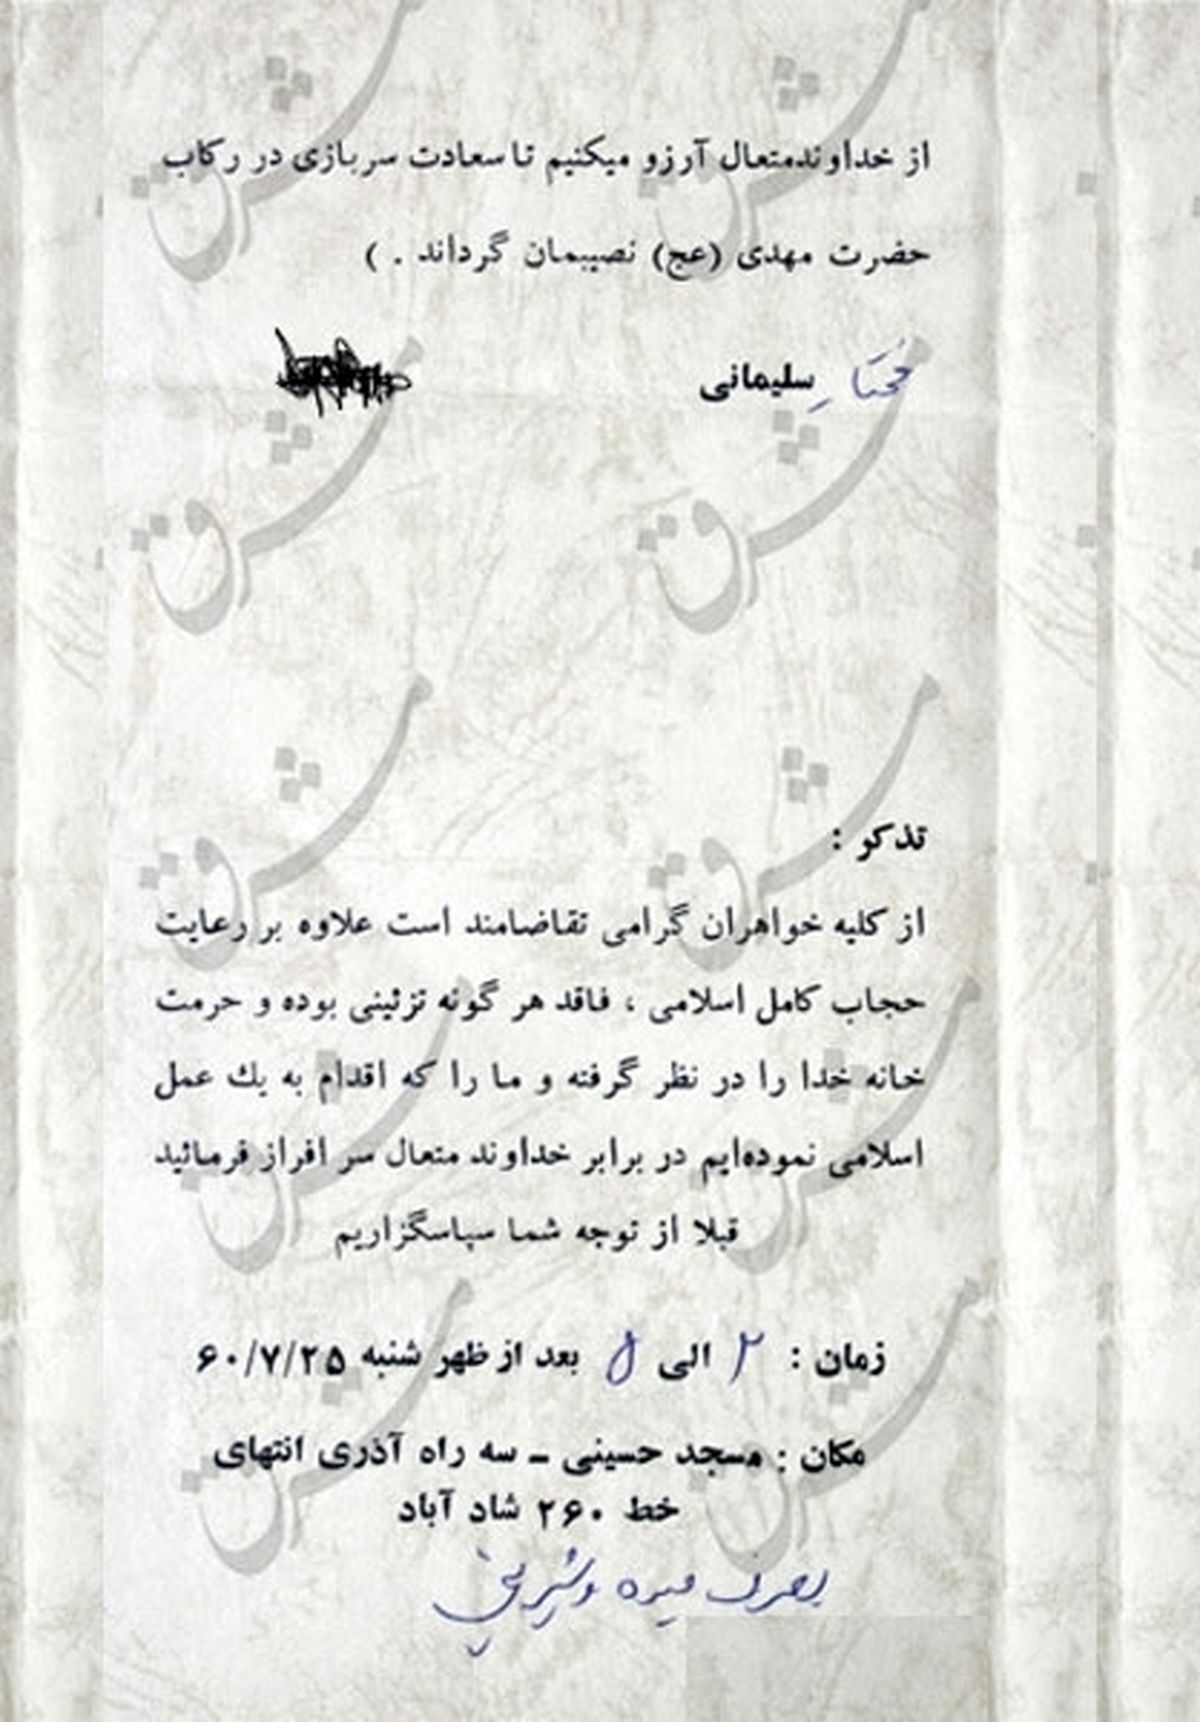 از خداوندمتعال آرزو میکنیم تا سعادت سربازی در رکاب
حضرت مهدی (عج) نصیبمان گرداند . )
مختار سلیمانی
تذکر :
از کلیه خواهران گرامی تقاضامند است علاوه بر رعایت
حجاب کامل اسلامی ، فاقد هر گونه تزئینی بوده و حرمت
خانه خدا را در نظر گرفته و ما را که اقدام به یك عمل
اسلامی نموده‌ایم در برابر خداوند متعال سر افراز فرمائید
قبلا از توجه شما سپاسگزاریم
زمان : ۲ الی ۵ بعد از ظهر شنبه ۶۰/۷/۲۵
مکان : مسجد حسینی ـ سه راه آذری انتهای
خط ۲۶۰ شاد آباد
بصرف میوه و شیرینی
مشرق